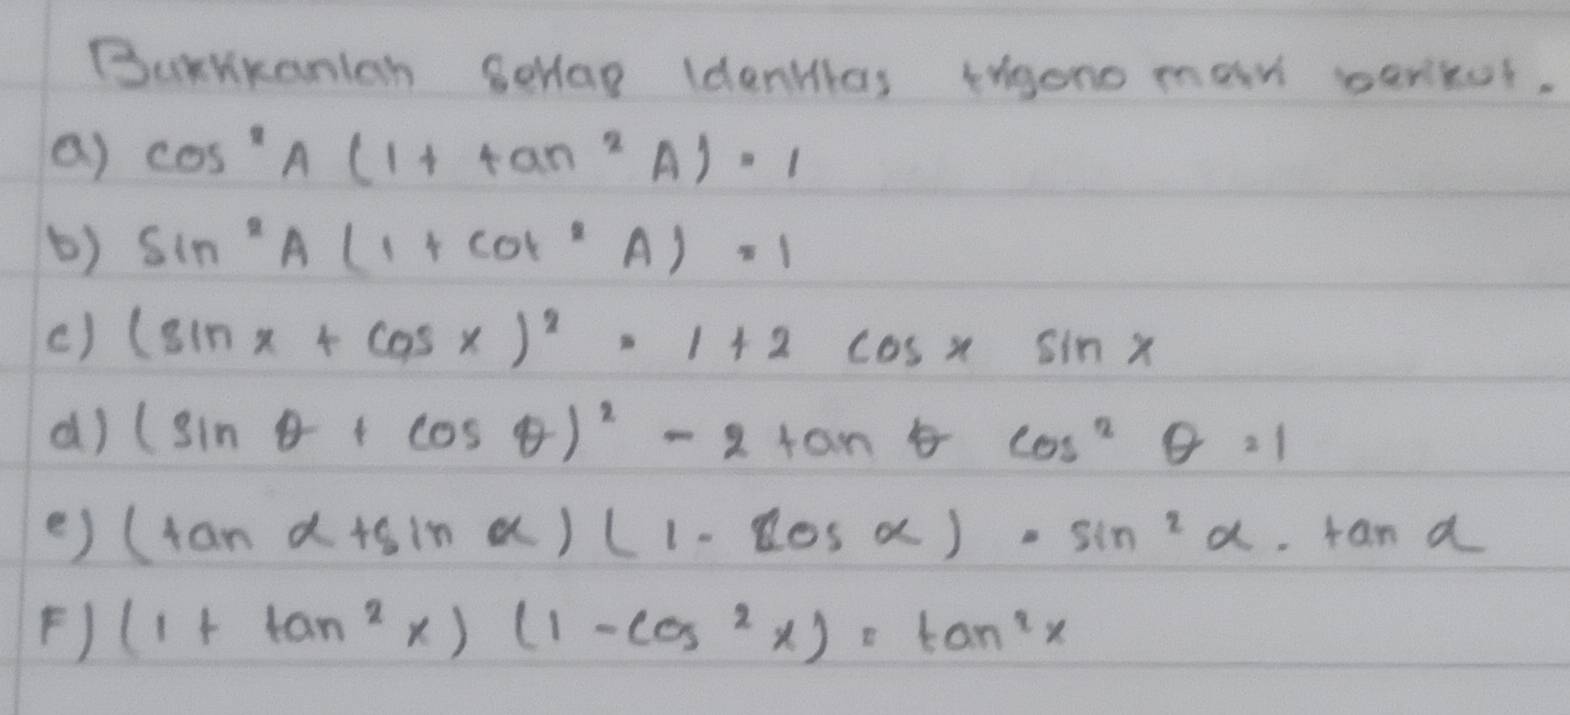 Buktikanlah setiap identitas trigonometri berikut.
a) cos² A (1 + tan² A) = 1
b) Sin² A (1 + cot² A) = 1
c) (sin x + cos x)² = 1 + 2 cos x sin x
d) (sin θ + cos θ)² - 2 tan θ cos² θ = 1
e) (tan α + sin α) (1 - cos α) = sin² α . tan α
F) (1 + tan² x) (1 - cos² x) = tan² x